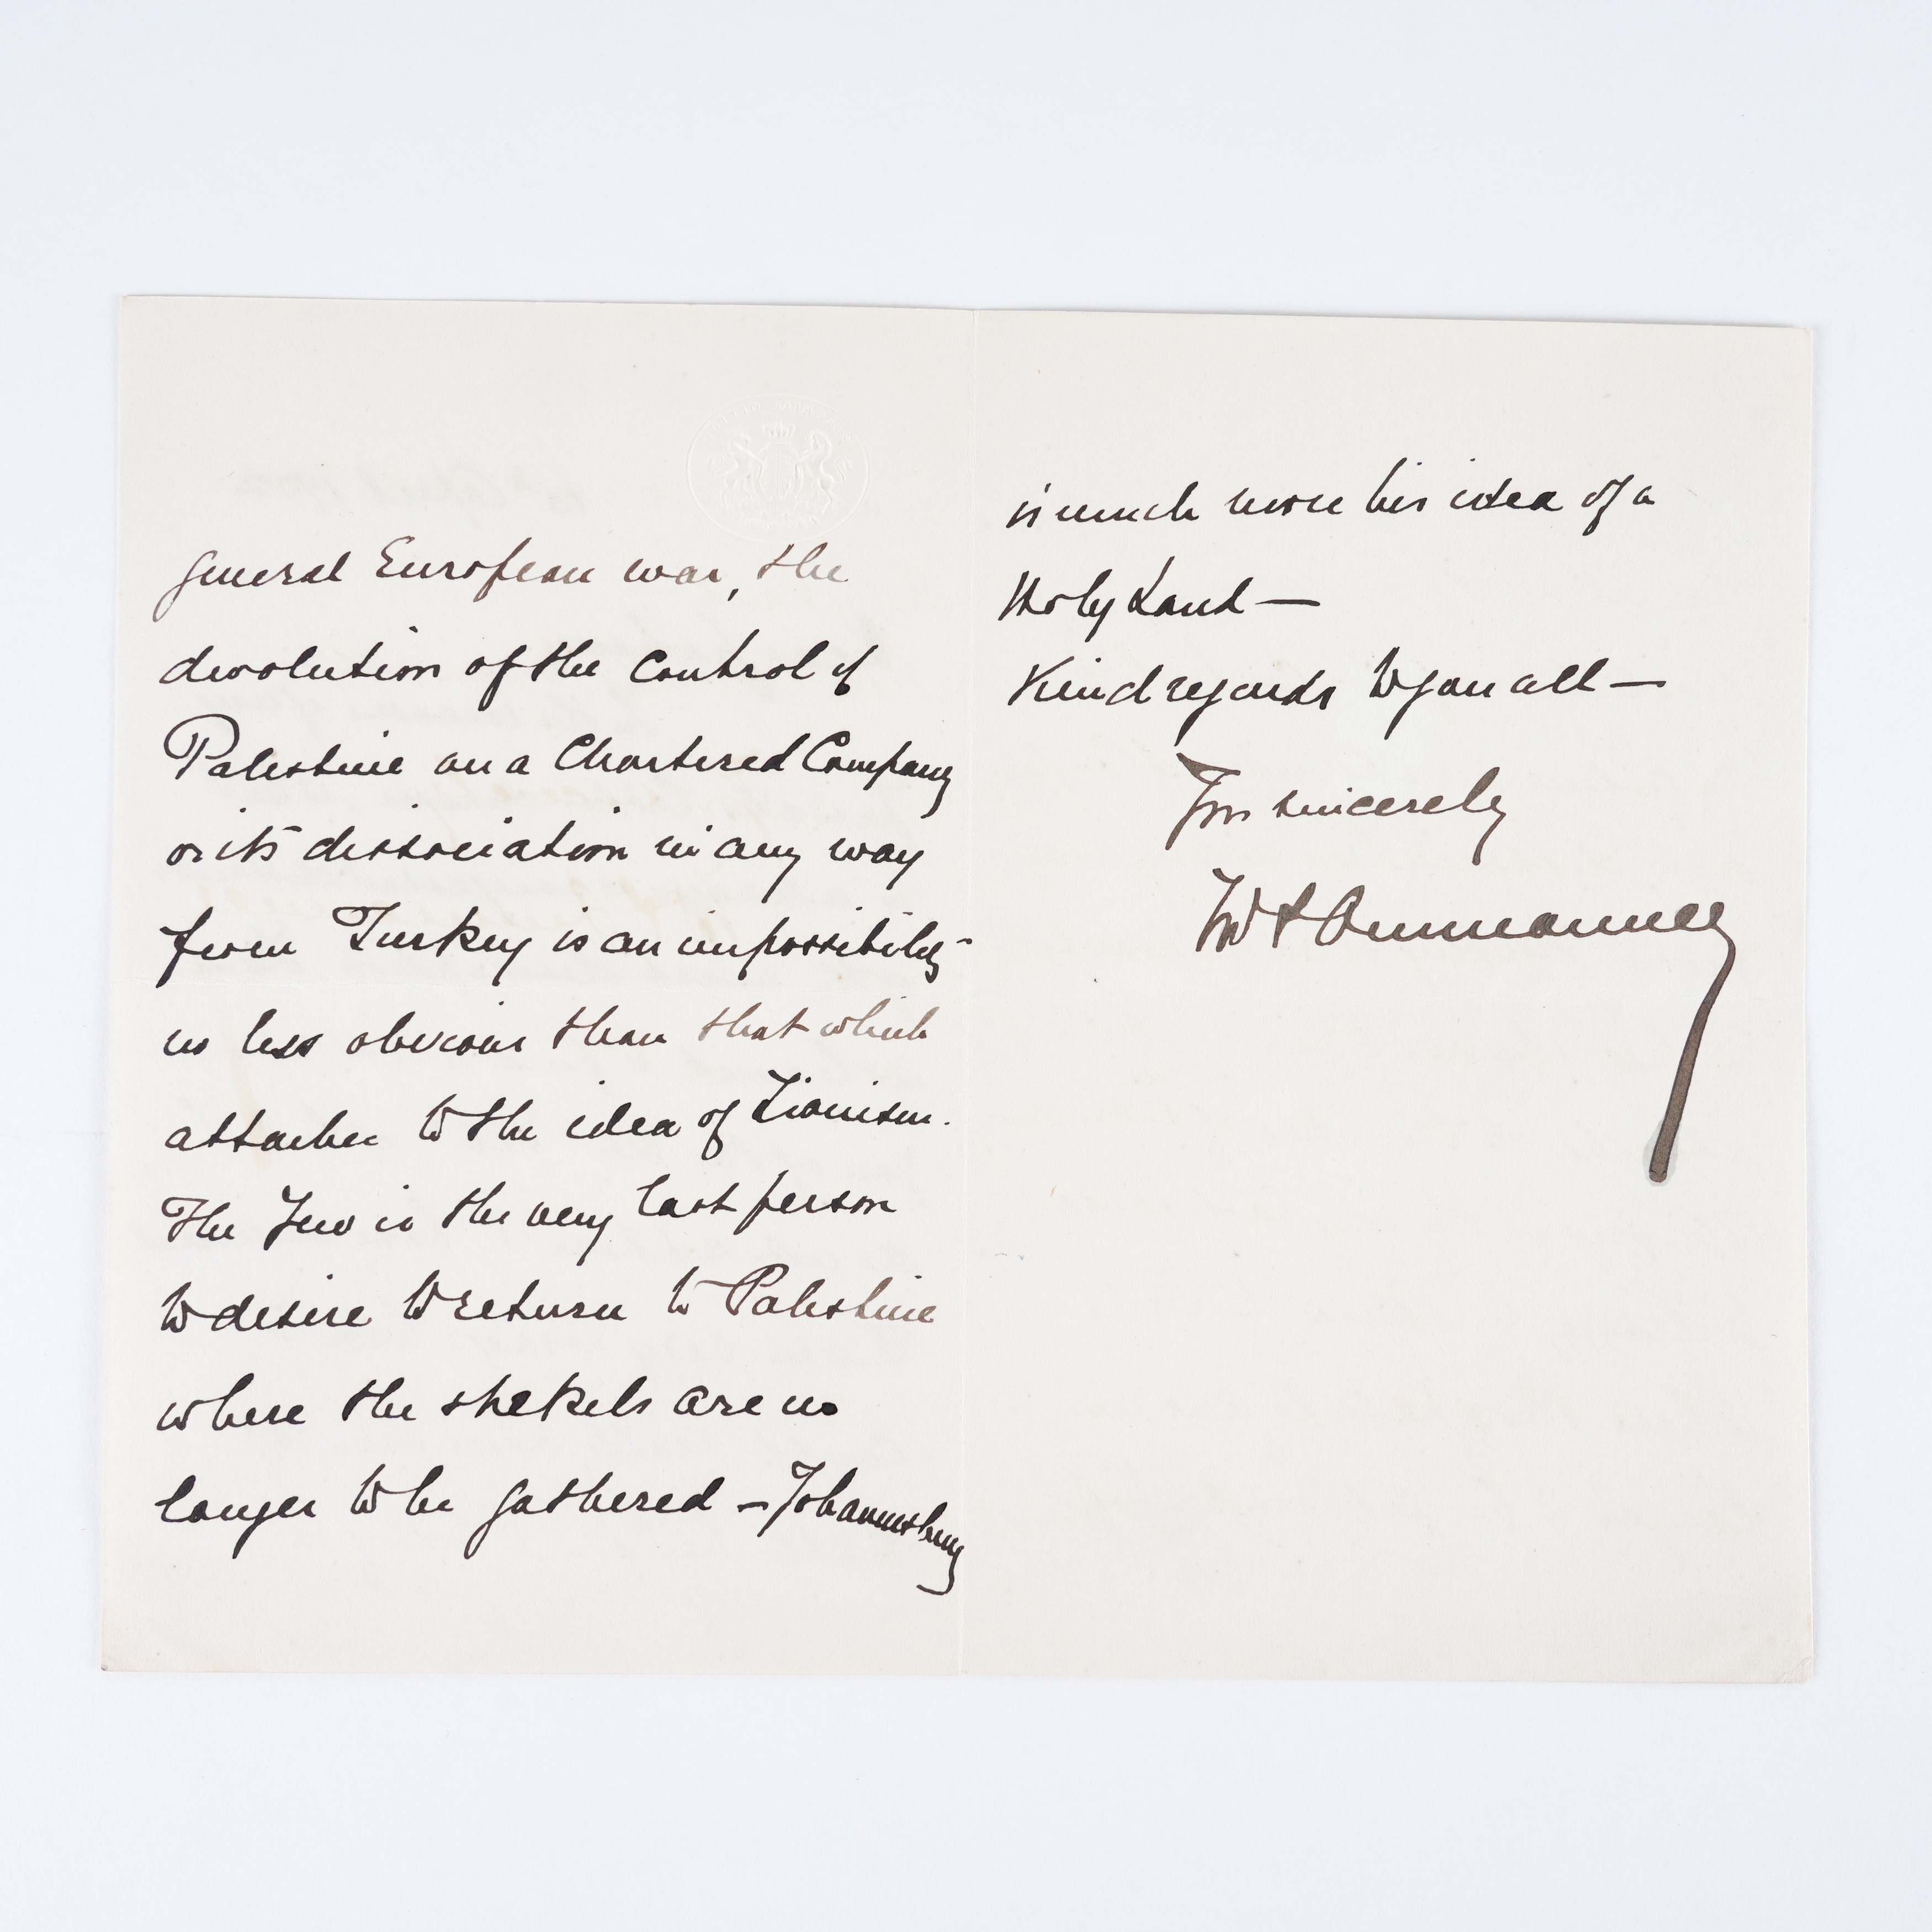 general European war, the
devolution of the control of
Palestine on a Chartered Company
or its dissociation in any way
from Turkey is an impossibility
no less obvious than that which
attaches to the idea of Zionism.
The Jew is the very last person
to desire to return to Palestine
where the shekels are no
longer to be gathered – Johannesburg
is much more his idea of a
Holy Land —
Kind regards to you all —
Yrs sincerely